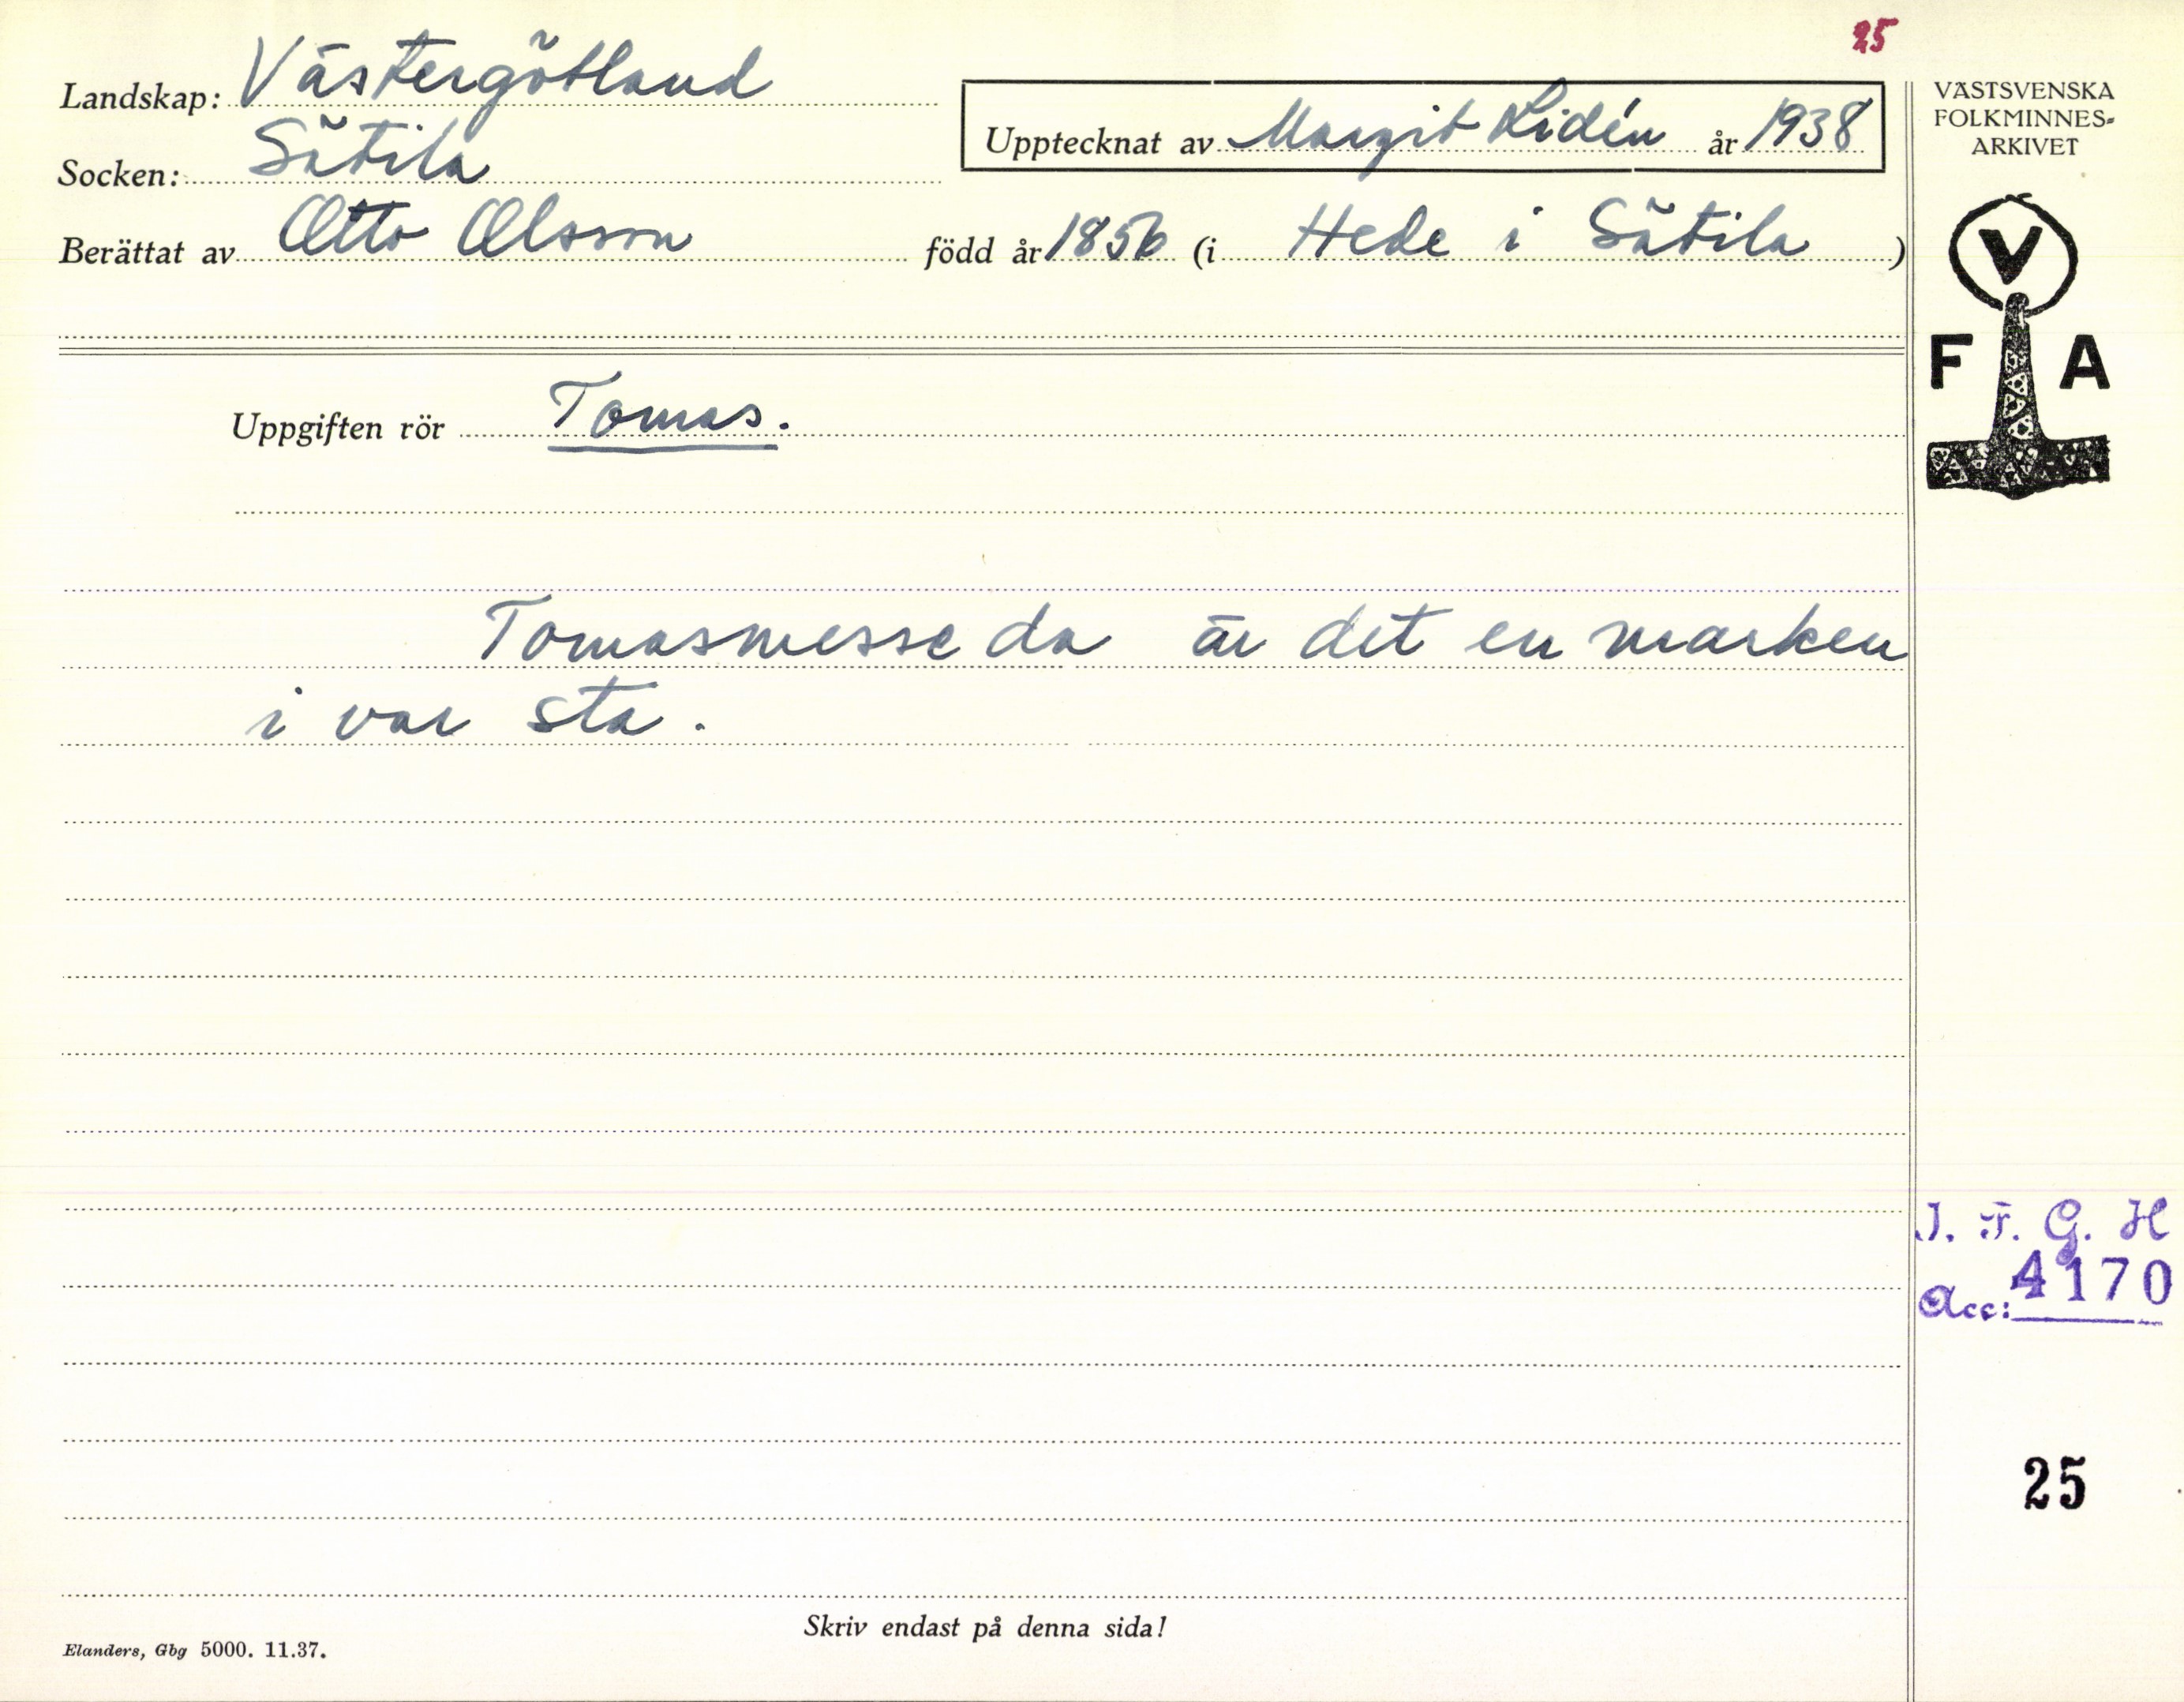 25
Landskap: Västergötland
Socken: Sätila
Upptecknat av Margit Lidén år 1938
Berättat av Otto Olsson född år 1856 (i Hede i Sätila)
VÄSTSVENSKA
FOLKMINNES=
ARKIVET
V
F A
Uppgiften rör Tomas.
Tomasmesse da är det en marken
i var sta.
I. F. G. H
Acc: 4170
25
Skriv endast på denna sida!
Elanders, Gbg 5000. 11.37.